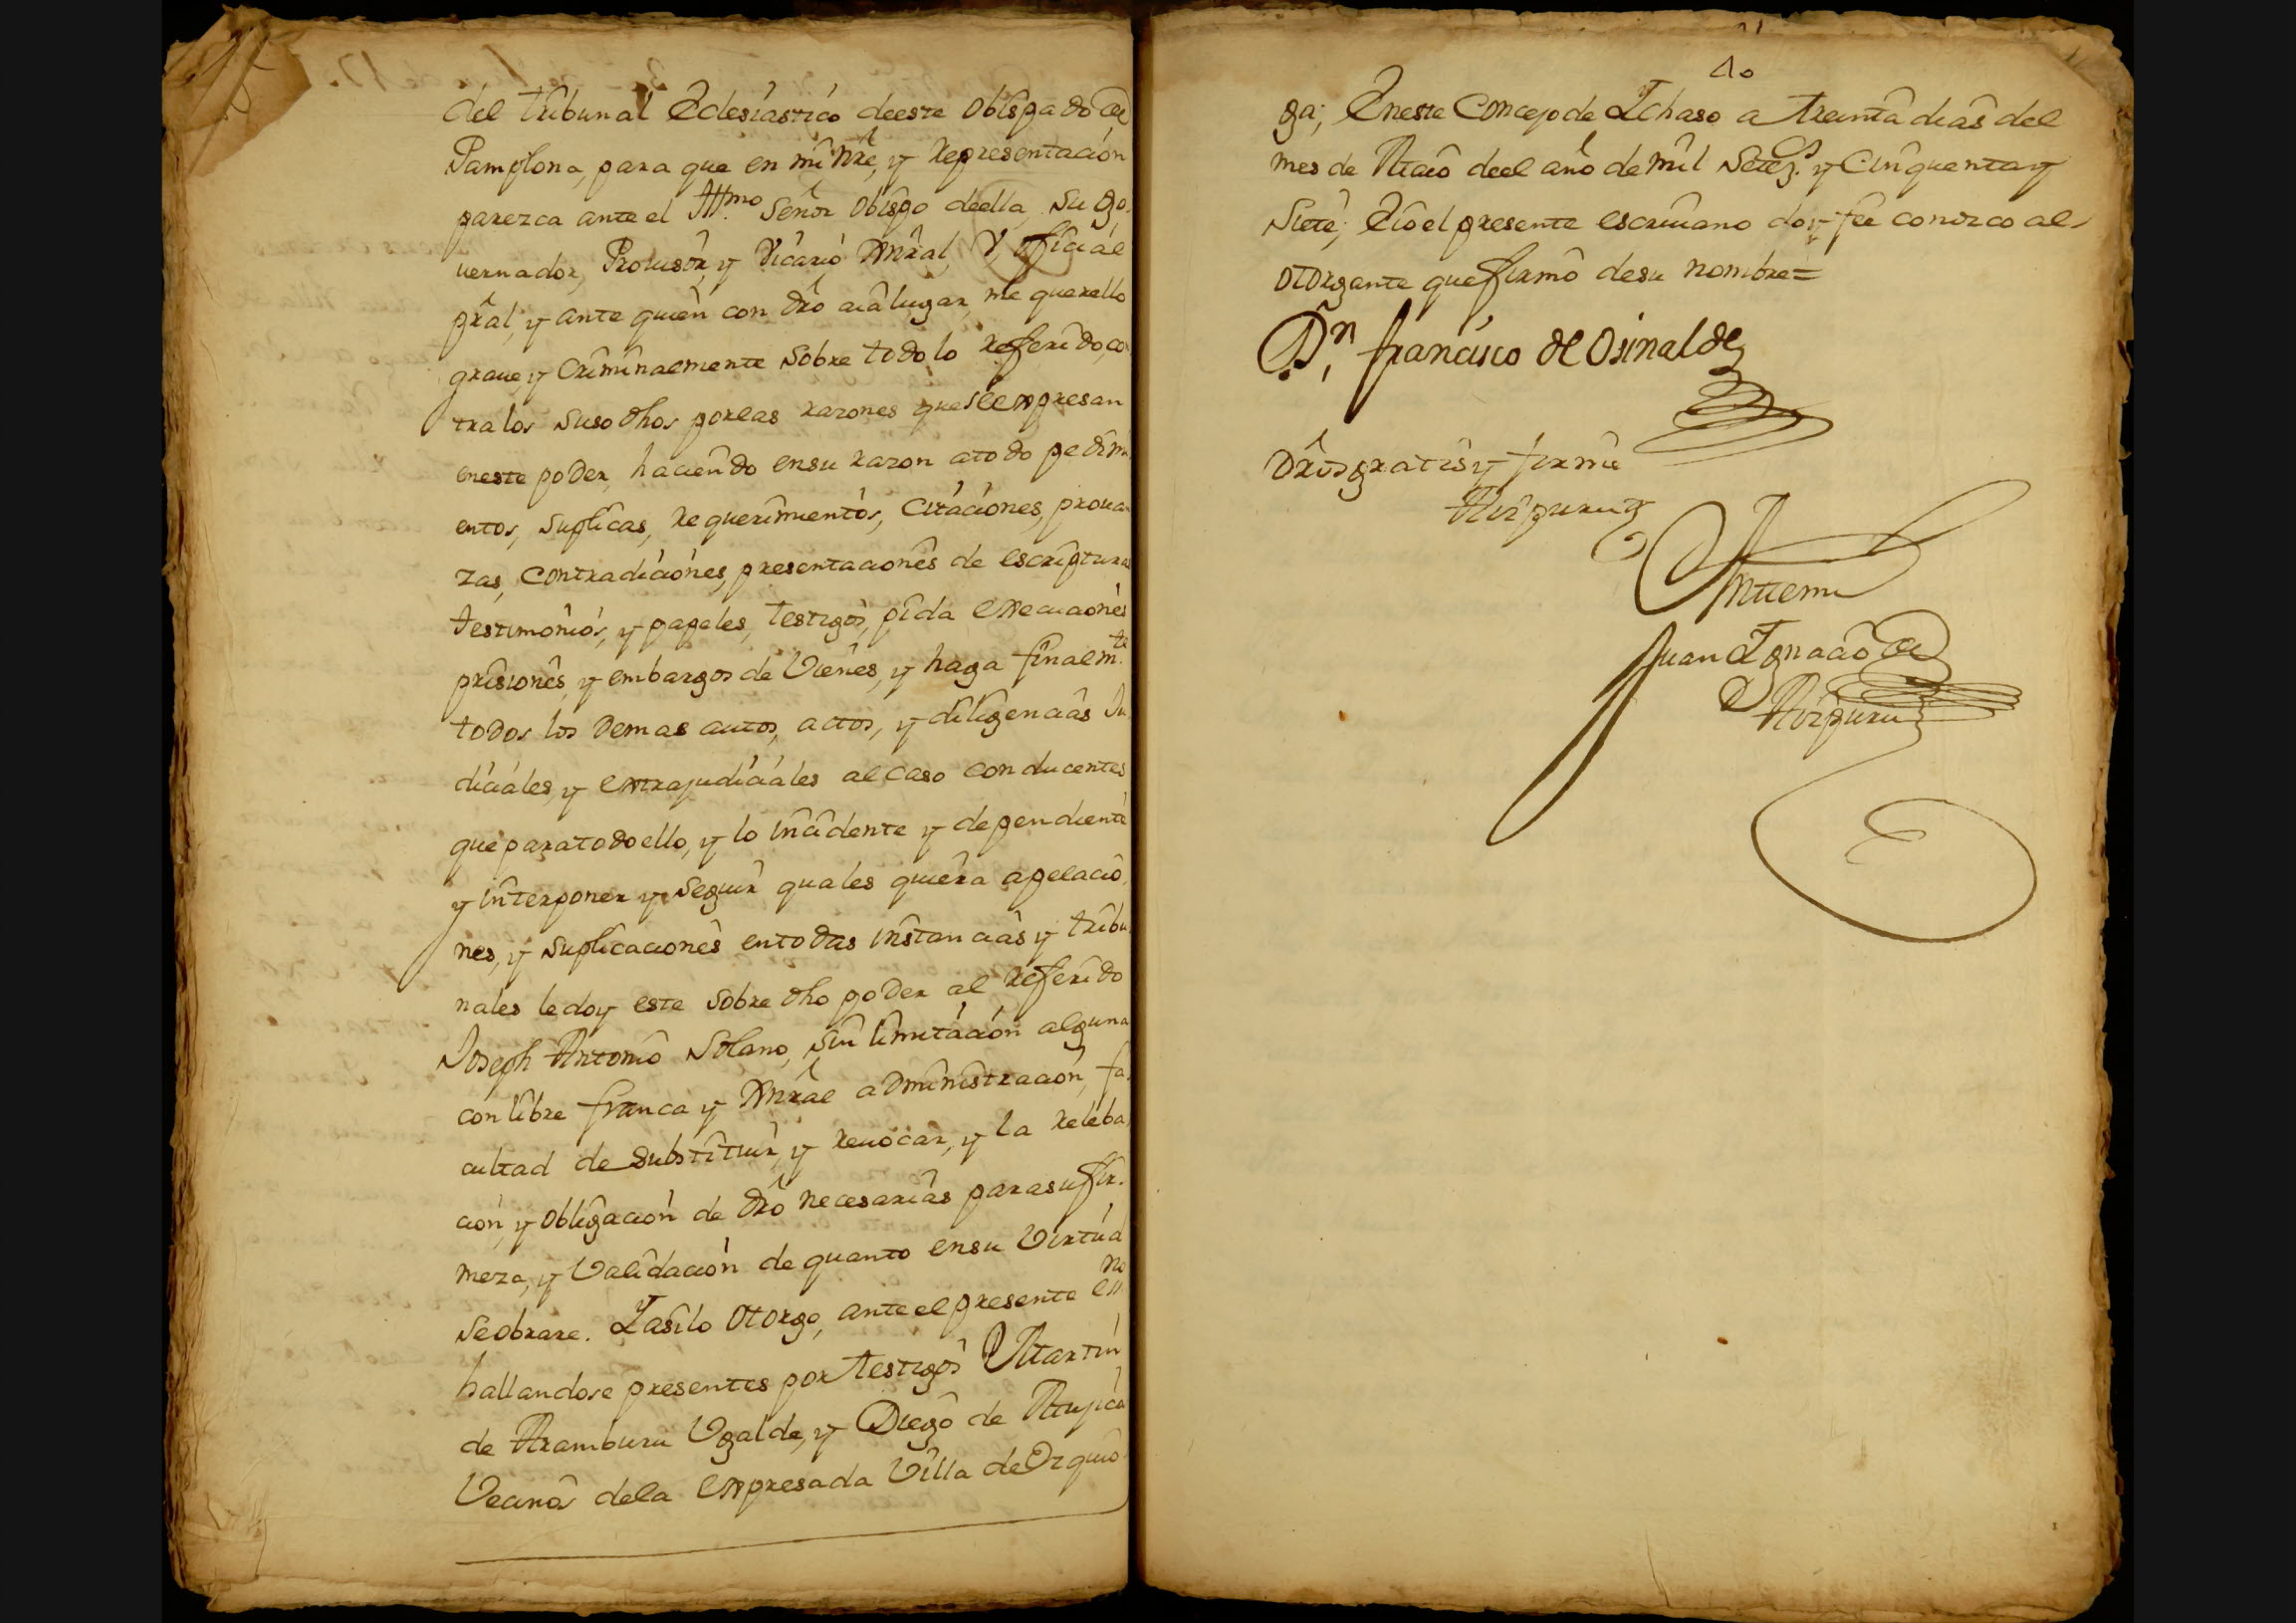 del tribunal Eclesiastico deeste obispado de
Pamplona, para que en mi nre, y representacion
parezca ante el Illmo Señor obispo deella, su go
uernador, Prouisor, y Vicario Gnral, y, oficial
pral, y ante quien con dro aia lugar, me querello
graue, y Criminalmente sobre todo lo referido, co
tra los suso dhos por las razones que se expresan
eneste poder, haciendo ensu razon atodo pedim
entos, suplicas, requerimientos, Citaciones, prouan
zas, contradiciones, presentaciones de escripturas
testimonios, y papeles, testigos, pida execuciones
prisiones, y embargos de Vienes, y haga finalmte
todos los demas autos, actos, y diligencias Ju
diciales, y extrajudiciales al caso conducentes
que paratodoello, y lo incidente y dependiente
y interponer y seguir quales quiera apelacio
nes, y suplicaciones entodas instancias y tribu
nales ledoy este sobre dho poder al referido
Joseph Antonio Solano, sin limitacion alguna
con libre franca y Gnral administracion, fa
cultad de substituir, y reuocar, y la releba
cion, y obligacion de dro necesarias parasu fir
meza, y Validacion de quanto ensu Virtud
seobrare. Yasilo otorgo, ante el presente essno
hallandose presentes por testigos Martin
de Aramburu Ugalde, y Diego de Mujica
Vecinos dela expresada Villa de Ezquio
40
ga; Eneste Concejo de Ychaso a treinta dias del
mes de Maio deel año de mil Setezs. y Cinquentay
Siete; Eio el presente escriuano doy fee conozco al
otorgante que firmó desu nombre =
Dn, francisco de Osinalde
Dros gratis y firmé
Aizpuru
Anttemi
Juan Ygnacio de
Aizpuru